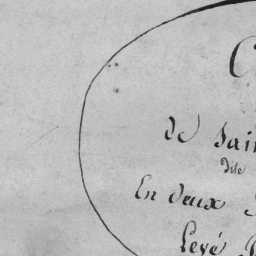 C
de Sai
dite
En deux
Levé